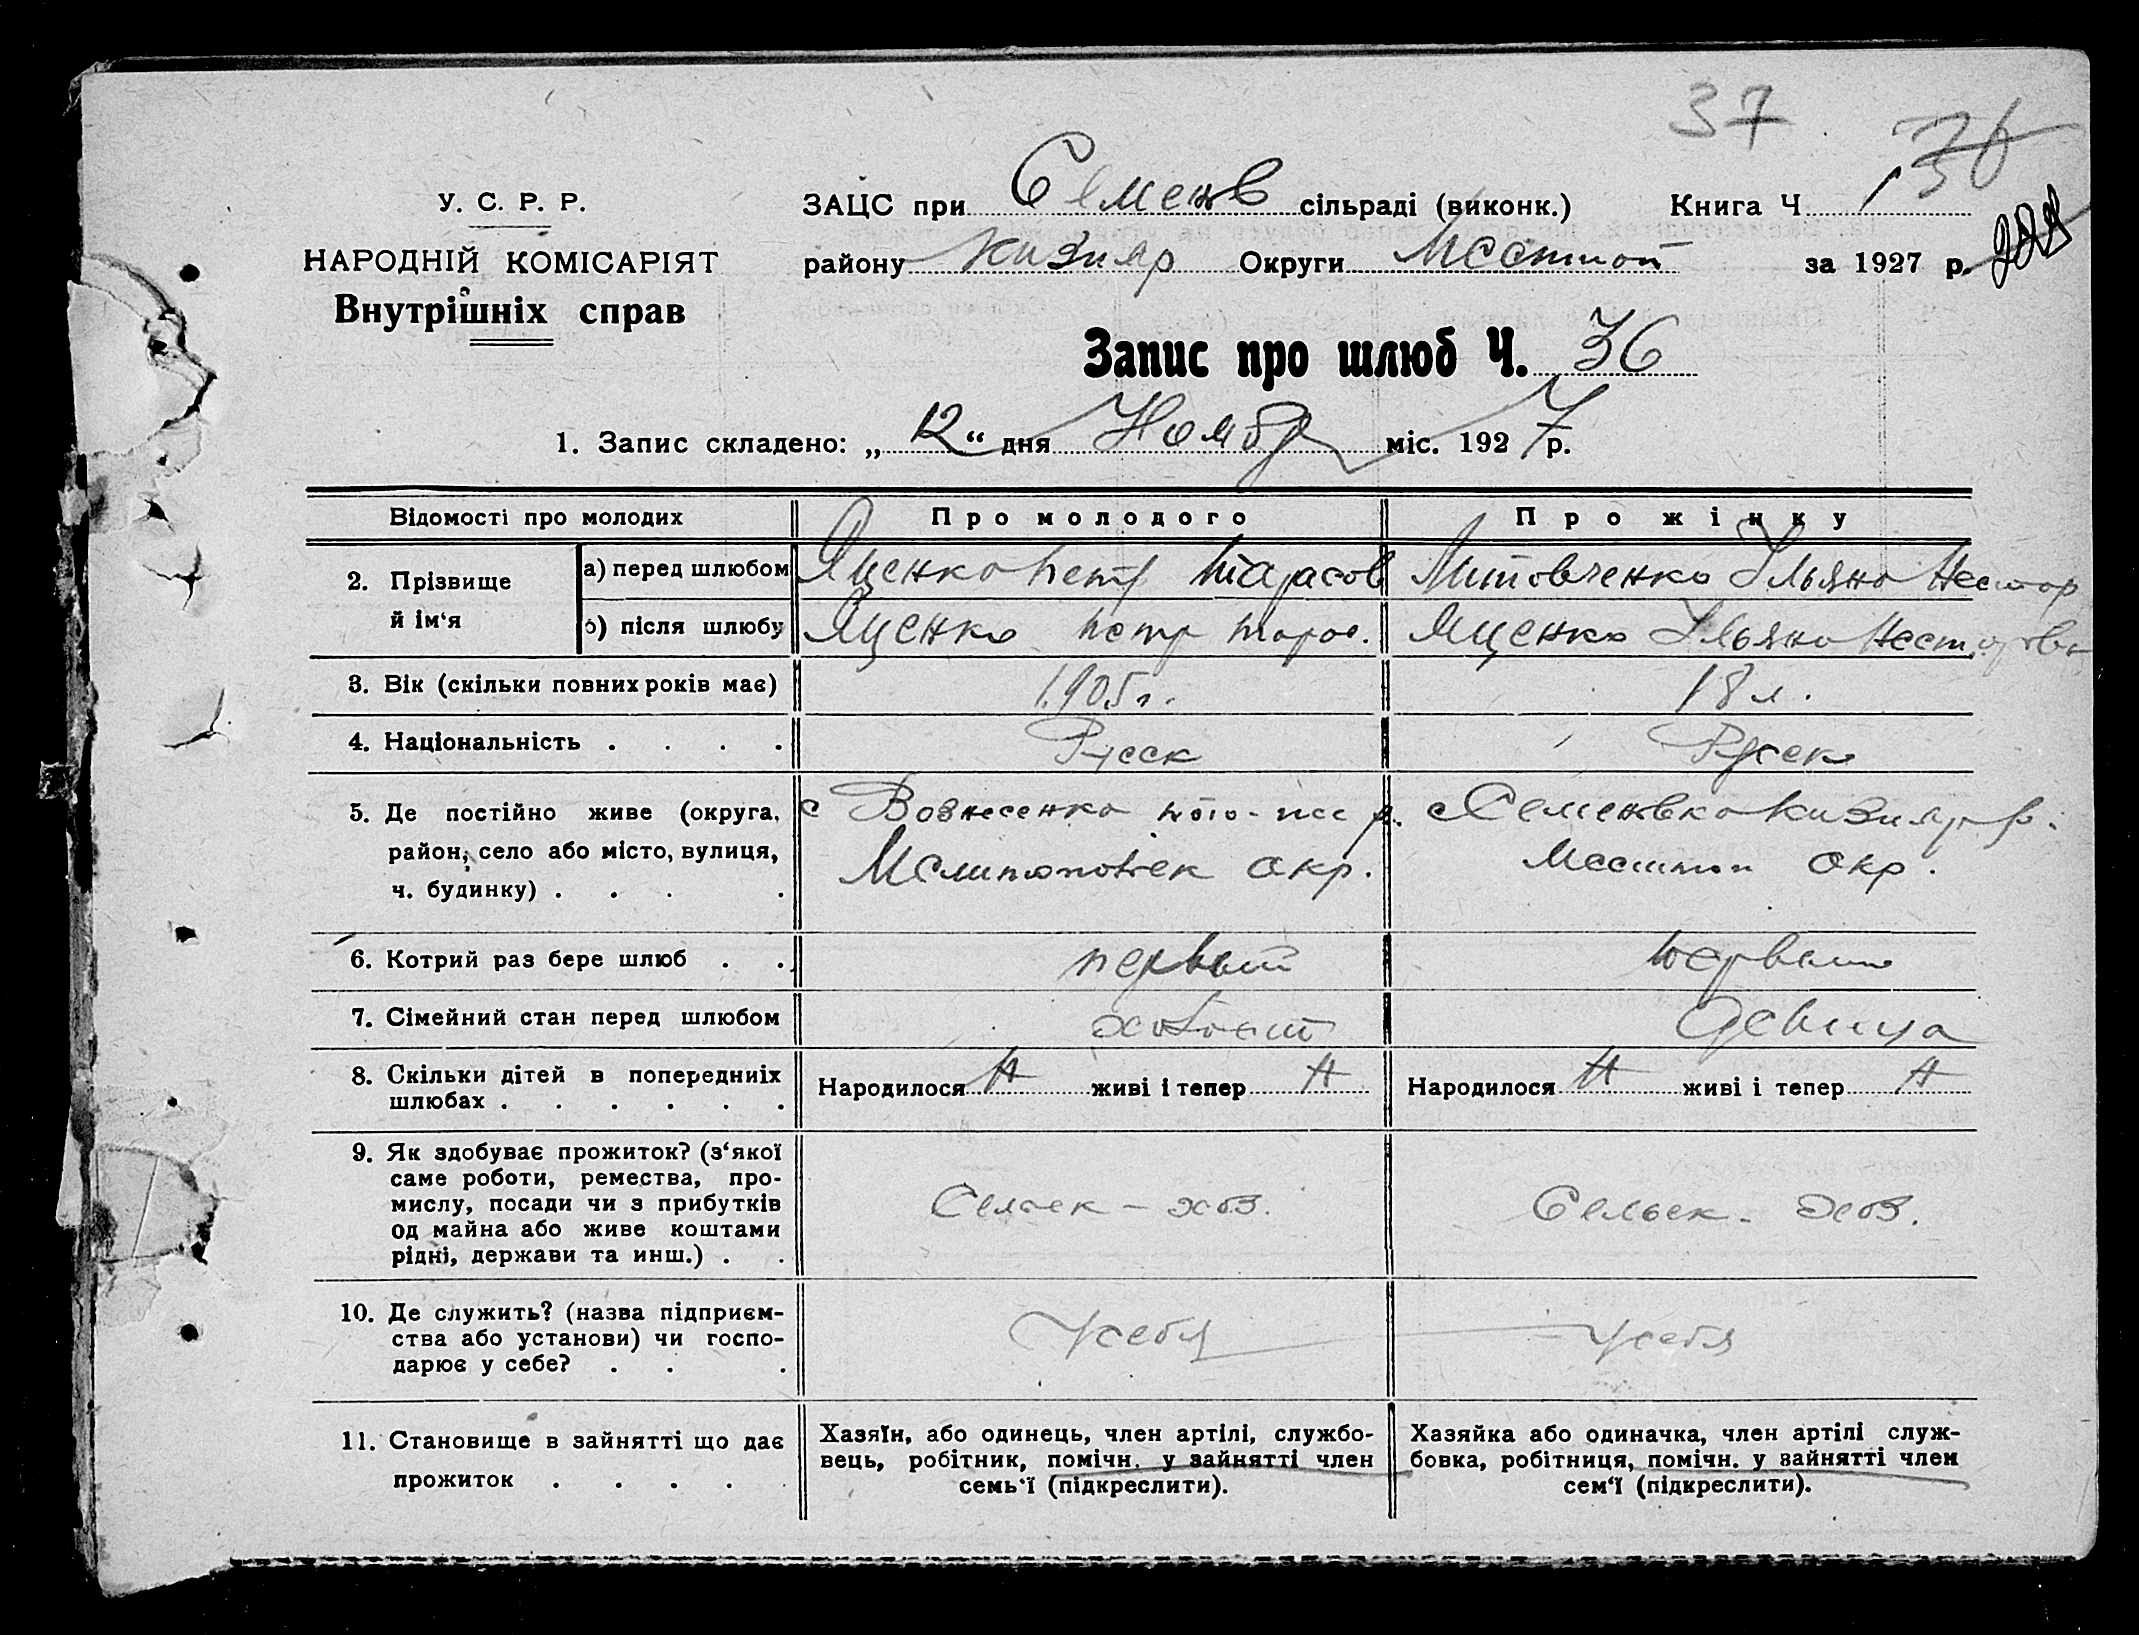 37
36
У. С. Р. Р.
НАРОДНІЙ КОМІСАРІЯТ
Внутрішніх справ
ЗАЦС при Семенов сільраді (виконк.) Книга Ч 1
району Кизияр Округи за 1927 р.
Запис про шлюб Ч. 36
1. Запис складено: „ 12 “ дня Ноябр міс. 1927 р.
Відомості про молодих Про молодого Про жінку
2. Прізвище й ім‘я
а) перед шлюбом Яценко Петр Тарасов Литовченко Ульяно Нестор
б) після шлюбу Яценко Петр Тарас. Яценко Ульяно Несторовн
3. Вік (скільки повних років має) 1905 г. 18 л.
4. Національність . . . . Русск Русск
5. Де постійно живе (округа, район, село або місто, вулиця, ч. будинку) . . . .
с Вознесенка р.
окр.
с Семеновко Кизияр р.
окр.
6. Котрий раз бере шлюб . . первый первый
7. Сімейний стан перед шлюбом холост девица
8. Скільки дітей в попередниіх шлюбах . . . . . .
Народилося Н живі і тепер Н
Народилося Н живі і тепер Н
9. Як здобуває прожиток? (з‘якої саме роботи, ремества, промислу, посади чи з прибутків од майна або живе коштами рідні, держави та инш.) . .
Сельск - хоз.
Сельск - хоз.
10. Де служить? (назва підприємства або установи) чи господарює у себе? . . .
у себя
у себя
11. Становище в зайнятті що дає прожиток . . . .
Хазяїн, або одинець, член артілі, службовець, робітник, помічн. у зайнятті член семь‘ї (підкреслити).
Хазяйка або одиначка, член артілі службовка, робітниця, помічн. у зайнятті член сем‘ї (підкреслити).